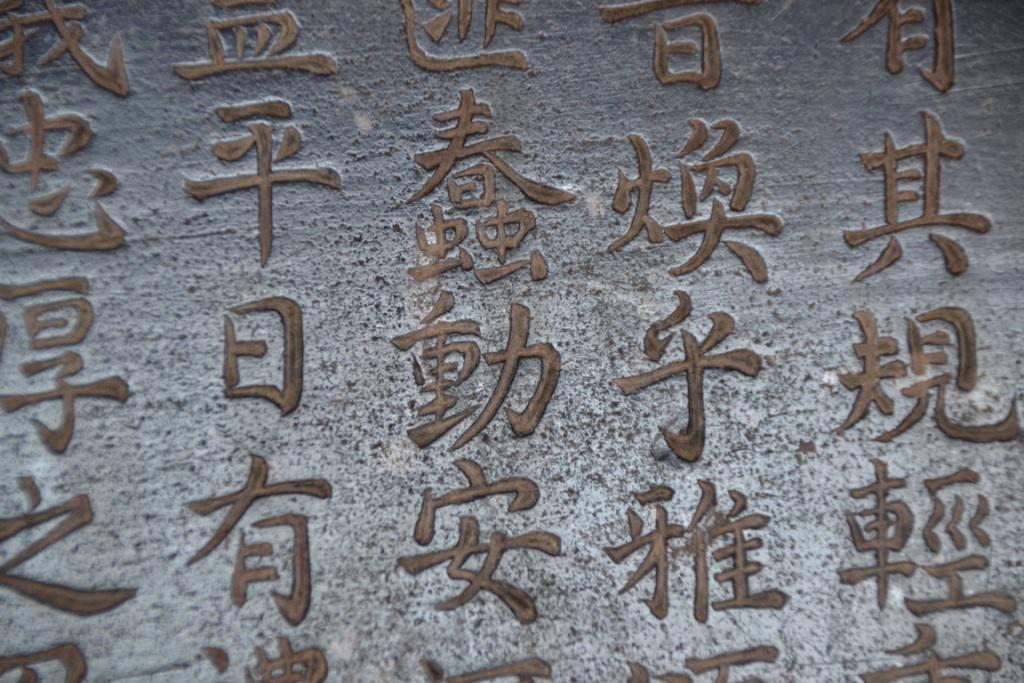 有其規輕重
煥乎雅
匪蠢動安
平日有
忠厚之